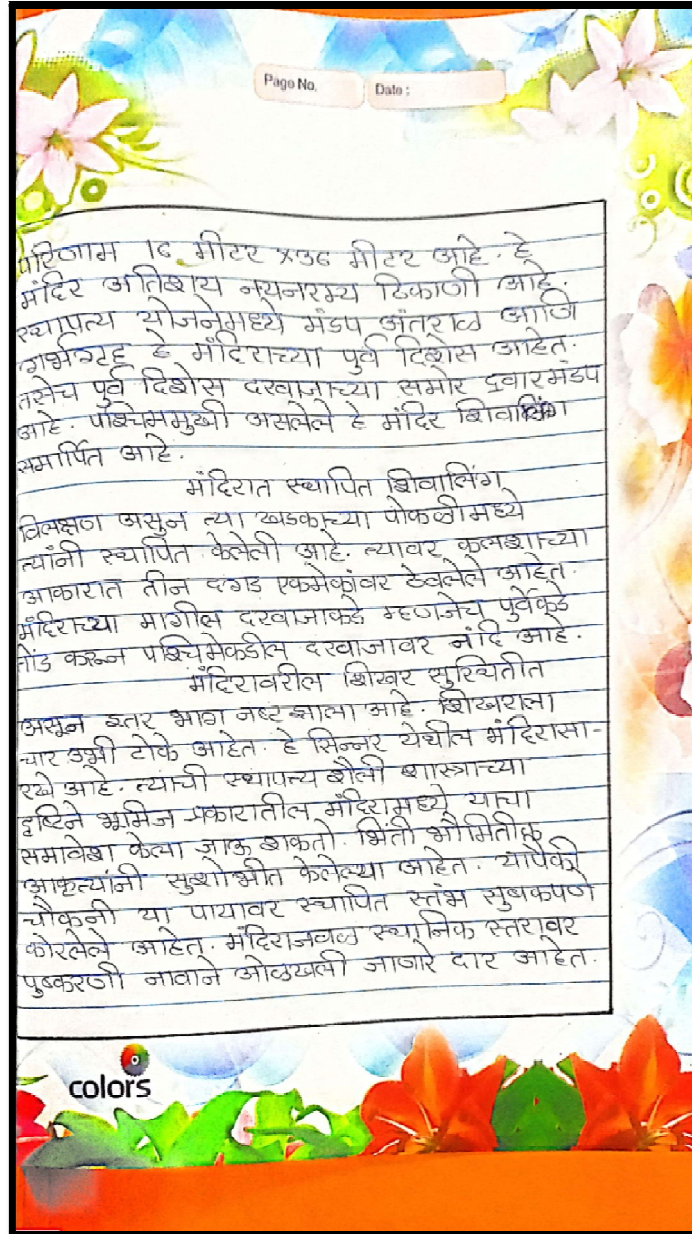 Page No.
Date :
परिणाम १६ मीटर x३६ मीटर आहे. हे
मंदिर अतिशय नयनरम्य ठिकाणी आहे.
स्थापत्य योजनेमध्ये मंडप अंतराळ आणि
गर्भगृह हे मंदिराच्या पुर्व दिशेस आहेत.
तसेच पुर्व दिशेस दरवाजाच्या समोर द्वारमंडप
आहे. पश्चिममुखी असलेले हे मंदिर शिवालिंग
समार्पित आहे.
मंदिरात स्थापित शिवालिंग
विलक्षण असुन त्या खडकाच्या पोकळीमध्ये
त्यांनी स्थापित केलेली आहे. त्यावर कलशाच्या
आकारात तीन दगड एकमेकांवर ठेवलेले आहेत.
मंदिराच्या मागील दरवाजाकडे म्हणजेच पुर्वेकडे
तोंड करून पश्चिमेकडील दरवाजावर नंदि आहे.
मंदिरावरील शिखर सुस्थितीत
असून इतर भाग नष्ट झाला आहे. शिखराला
चार उभी टोके आहेत. हे सिन्नर येथील मंदिरासा-
रखे आहे. त्याची स्थापत्य शैली शास्त्राच्या
दृष्टिने भूमिज प्रकारातील मंदिरामध्ये याचा
समावेश केला जाऊ शकतो. भिंती भौमितीक
आकृत्यांनी सुशोभीत केलेल्या आहेत. यापैकी
चौकनी या पायावर स्थापित स्तंभ सुबकपणे
कोरलेले आहेत. मंदिराजवळ स्थानिक स्तरावर
पुष्करणी नावाने ओळखली जाणारे दार आहेत.
colors